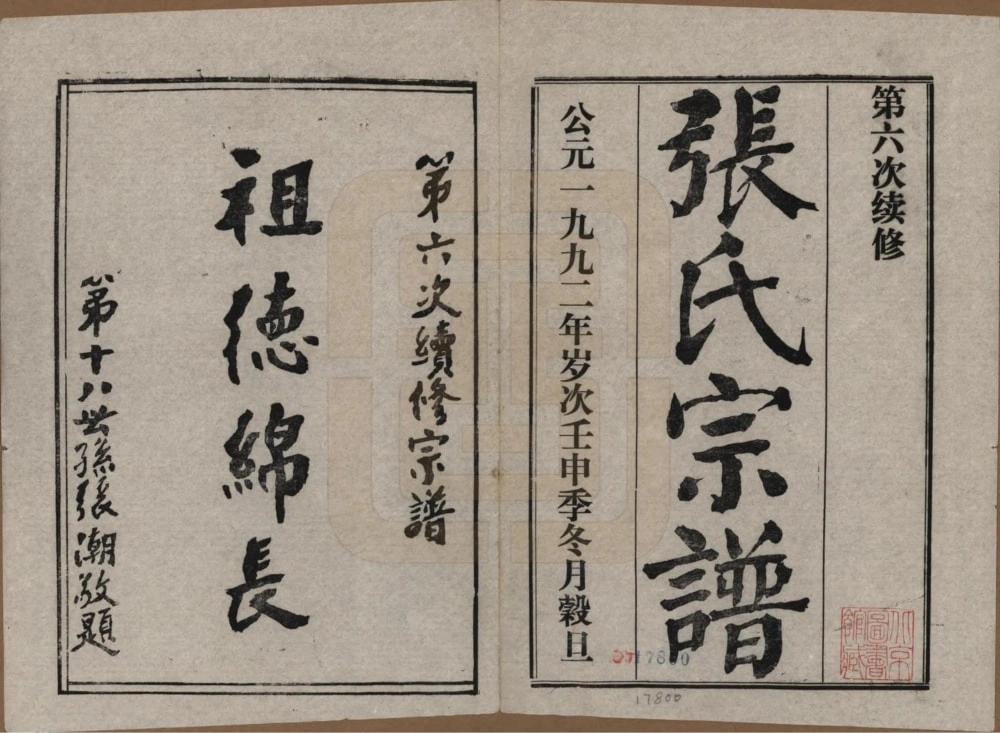 第六次续修
張氏宗譜
公元一九九二年岁次壬申季冬月穀旦
17800
17800
第六次續修宗譜
祖德綿長
第十八世孫張潮敬題